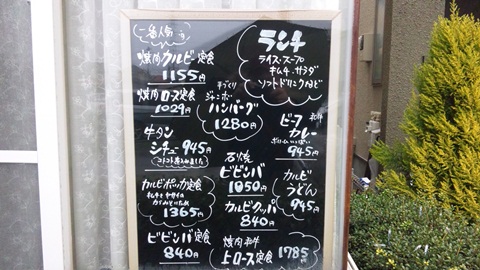 一番人気
焼肉カルビー定食
1155円
焼肉ロース定食
1029円
牛タン
シチュー945円
コトコト煮込みました
カルビポッカ定食
キムチとヤサイの
1365円
ビビンバ定食
840円
手づくり
ジャンボ
ハンバーグ
1280円
石焼
ビビンバ
1050円
カルビクッパ
840円
焼肉和牛
上ロース定食
1785円
ランチ
ライス・スープ
キムチ・サラダ
ソフトドリンクなど
ビーフ
カレー
ボリュームいっぱい
945円
カルビ
うどん
945円